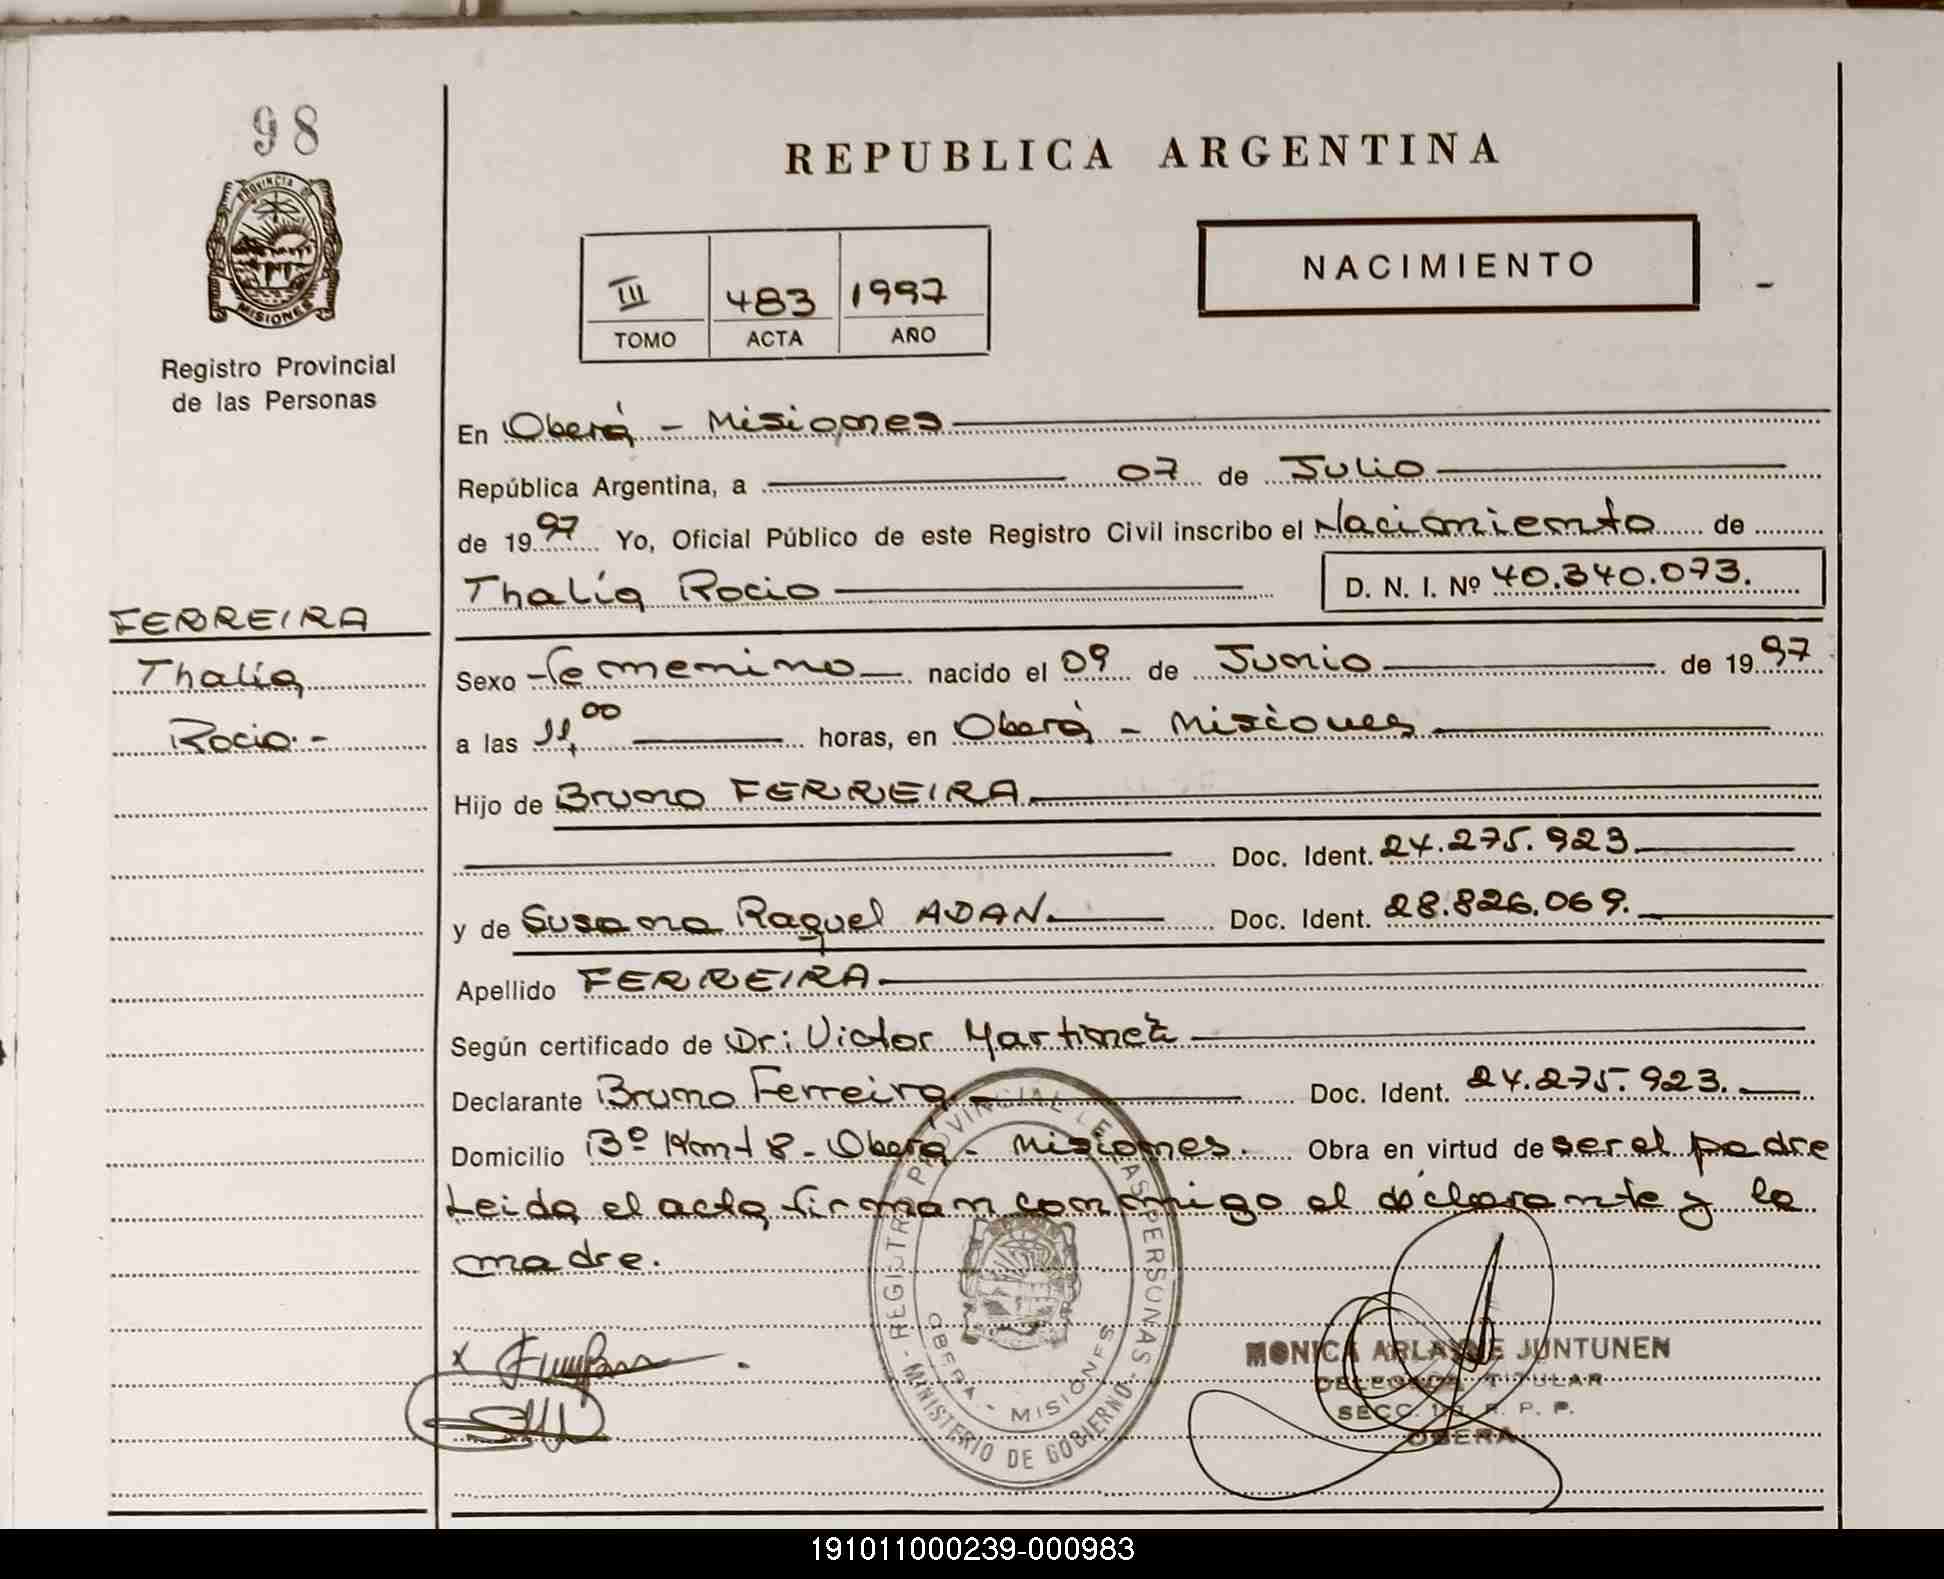 98
PROVINCIA DE
MISIONES
Registro Provincial
de las Personas
REPUBLICA ARGENTINA
III 483 1997
TOMO ACTA AÑO
NACIMIENTO
En Oberá - Misiones
República Argentina, a 07 de Julio
de 1997 Yo, Oficial Público de este Registro Civil inscribo el Nacimiento de
Thalía Rocio D. N. I. Nº 40.340.073.
FERREIRA
Thalía
Rocio.-
Sexo femenino nacido el 09 de Junio de 1997
a las 11,00 horas, en Oberá - Misiones
Hijo de Bruno FERREIRA
Doc. Ident. 24.275.923.
y de Susana Raquel ADAN. Doc. Ident. 28.826.069.
Apellido FERREIRA
Según certificado de Dr: Victor Martinez
Declarante Bruno Ferreira Doc. Ident. 24.275.923.
Domicilio Bº Km 8 - Oberá - Misiones. Obra en virtud de ser el padre
Leida el acta firman conmigo el declarante y la
madre.
REGISTRO PROVINCIAL DE LAS PERSONAS
OBERA - MISIONES
MINISTERIO DE GOBIERNO
MONICA ARLAINE JUNTUNEN
DELEGADA TITULAR
SECC. R. P. P.
OBERA
191011000239-000983